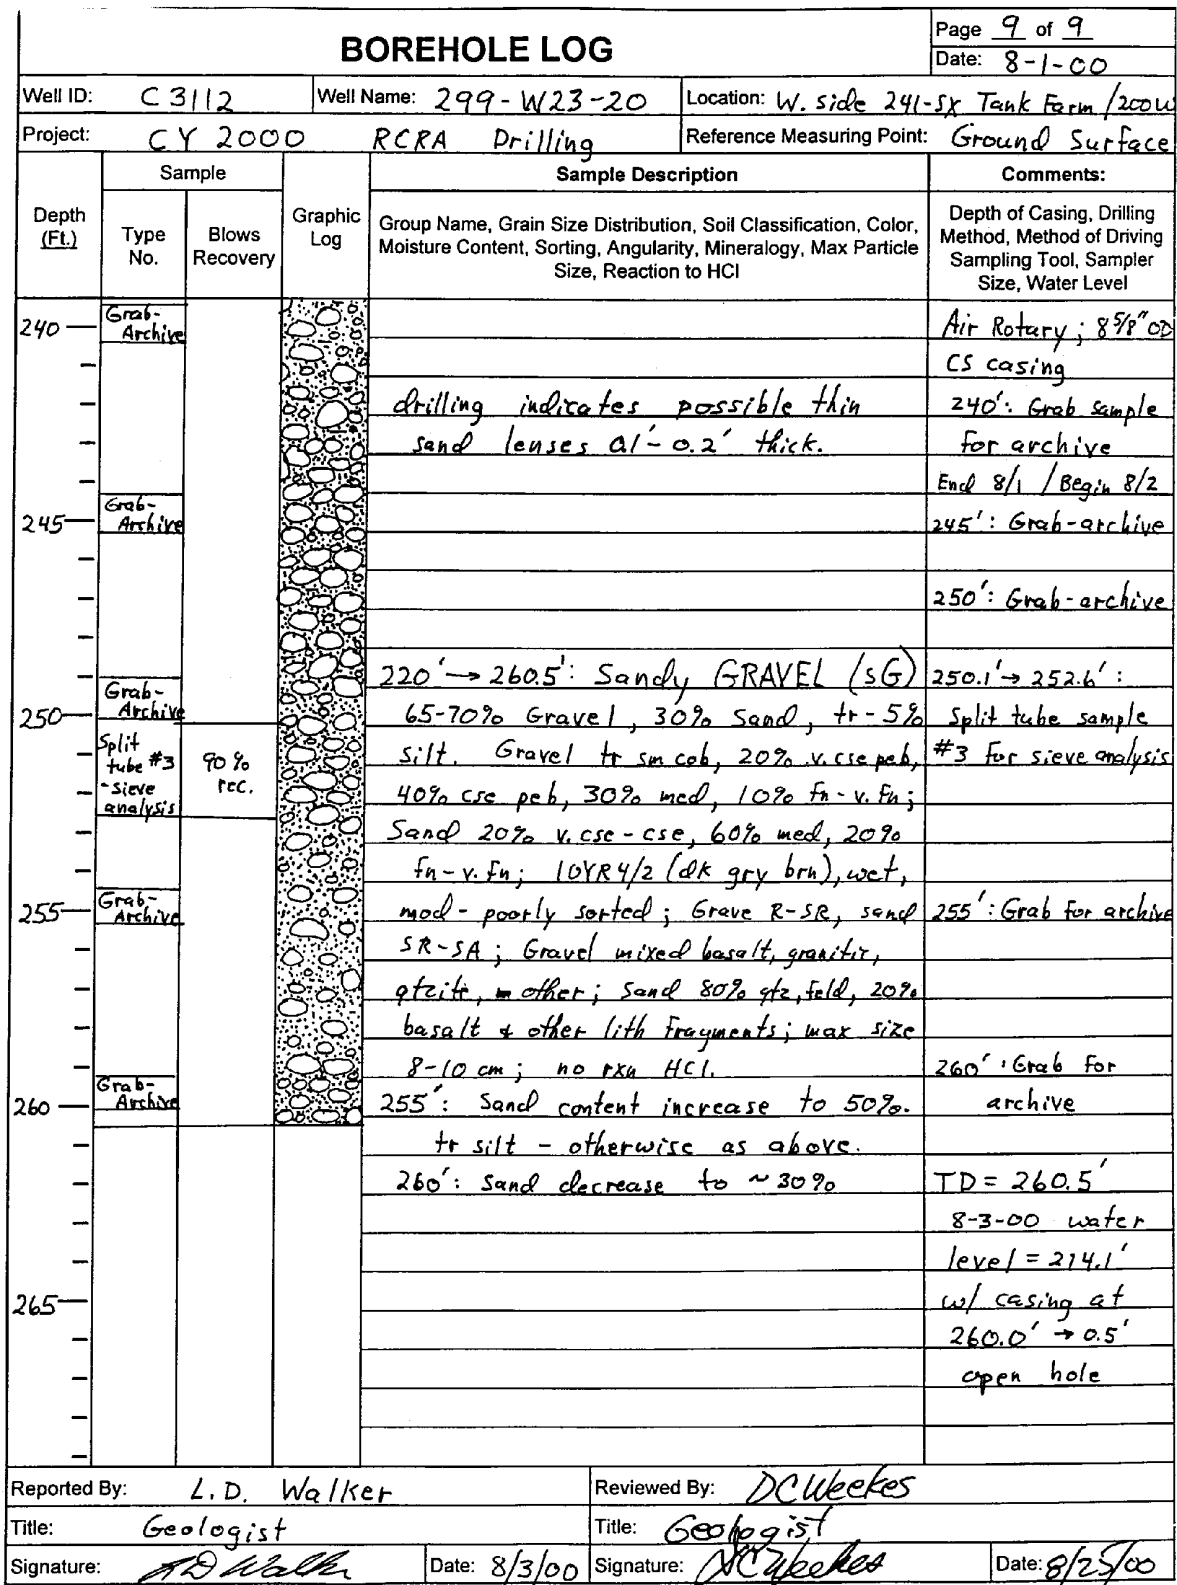 BOREHOLE LOG
Page 9 of 9
Date: 8-1-00
Well ID: C3112 Well Name: 299-W23-20 Location: W. side 241-SX Tank Farm /200W
Project: CY 2000 RCRA Drilling Reference Measuring Point: Ground Surface
Depth (Ft.)
Sample
Type No.
Blows Recovery
Graphic Log
Sample Description
Group Name, Grain Size Distribution, Soil Classification, Color,
Moisture Content, Sorting, Angularity, Mineralogy, Max Particle
Size, Reaction to HCl
Comments:
Depth of Casing, Drilling
Method, Method of Driving
Sampling Tool, Sampler
Size, Water Level
240
245
250
255
260
265
Grab-
Archive
Grab-
Archive
Grab-
Archive
Split
tube #3
-sieve
analysis
90%
rec.
Grab-
Archive
Grab-
Archive
drilling indicates possible thin
sand lenses 0.1'-0.2' thick.
220' → 260.5': Sandy GRAVEL (sG)
65-70% Gravel, 30% Sand, tr-5%
silt. Gravel tr sm cob, 20% v.cse peb,
40% cse peb, 30% med, 10% fn-v.fn;
Sand 20% v.cse-cse, 60% med, 20%
fn-v.fn; 10YR4/2 (dk gry brn), wet,
mod-poorly sorted; Grave R-SR, sand
SR-SA; Gravel mixed basalt, granitic,
qtzite, other; Sand 80% qtz, feld, 20%
basalt & other lith fragments; max size
8-10 cm; no rxn HCl.
255': Sand content increase to 50%.
tr silt - otherwise as above.
260': Sand decrease to ~30%
Air Rotary; 8 5/8" OD
CS casing
240': Grab sample
for archive
End 8/1 / Begin 8/2
245': Grab-archive
250': Grab-archive
250.1' → 252.6':
Split tube sample
#3 for sieve analysis
255': Grab for archive
260': Grab for
archive
TD = 260.5'
8-3-00 water
level = 214.1'
w/ casing at
260.0' → 0.5'
open hole
Reported By: L.D. Walker Reviewed By: DC Weekes
Title: Geologist Title: Geologist
Signature: LD Walker Date: 8/3/00 Signature: DC Weekes Date: 8/25/00